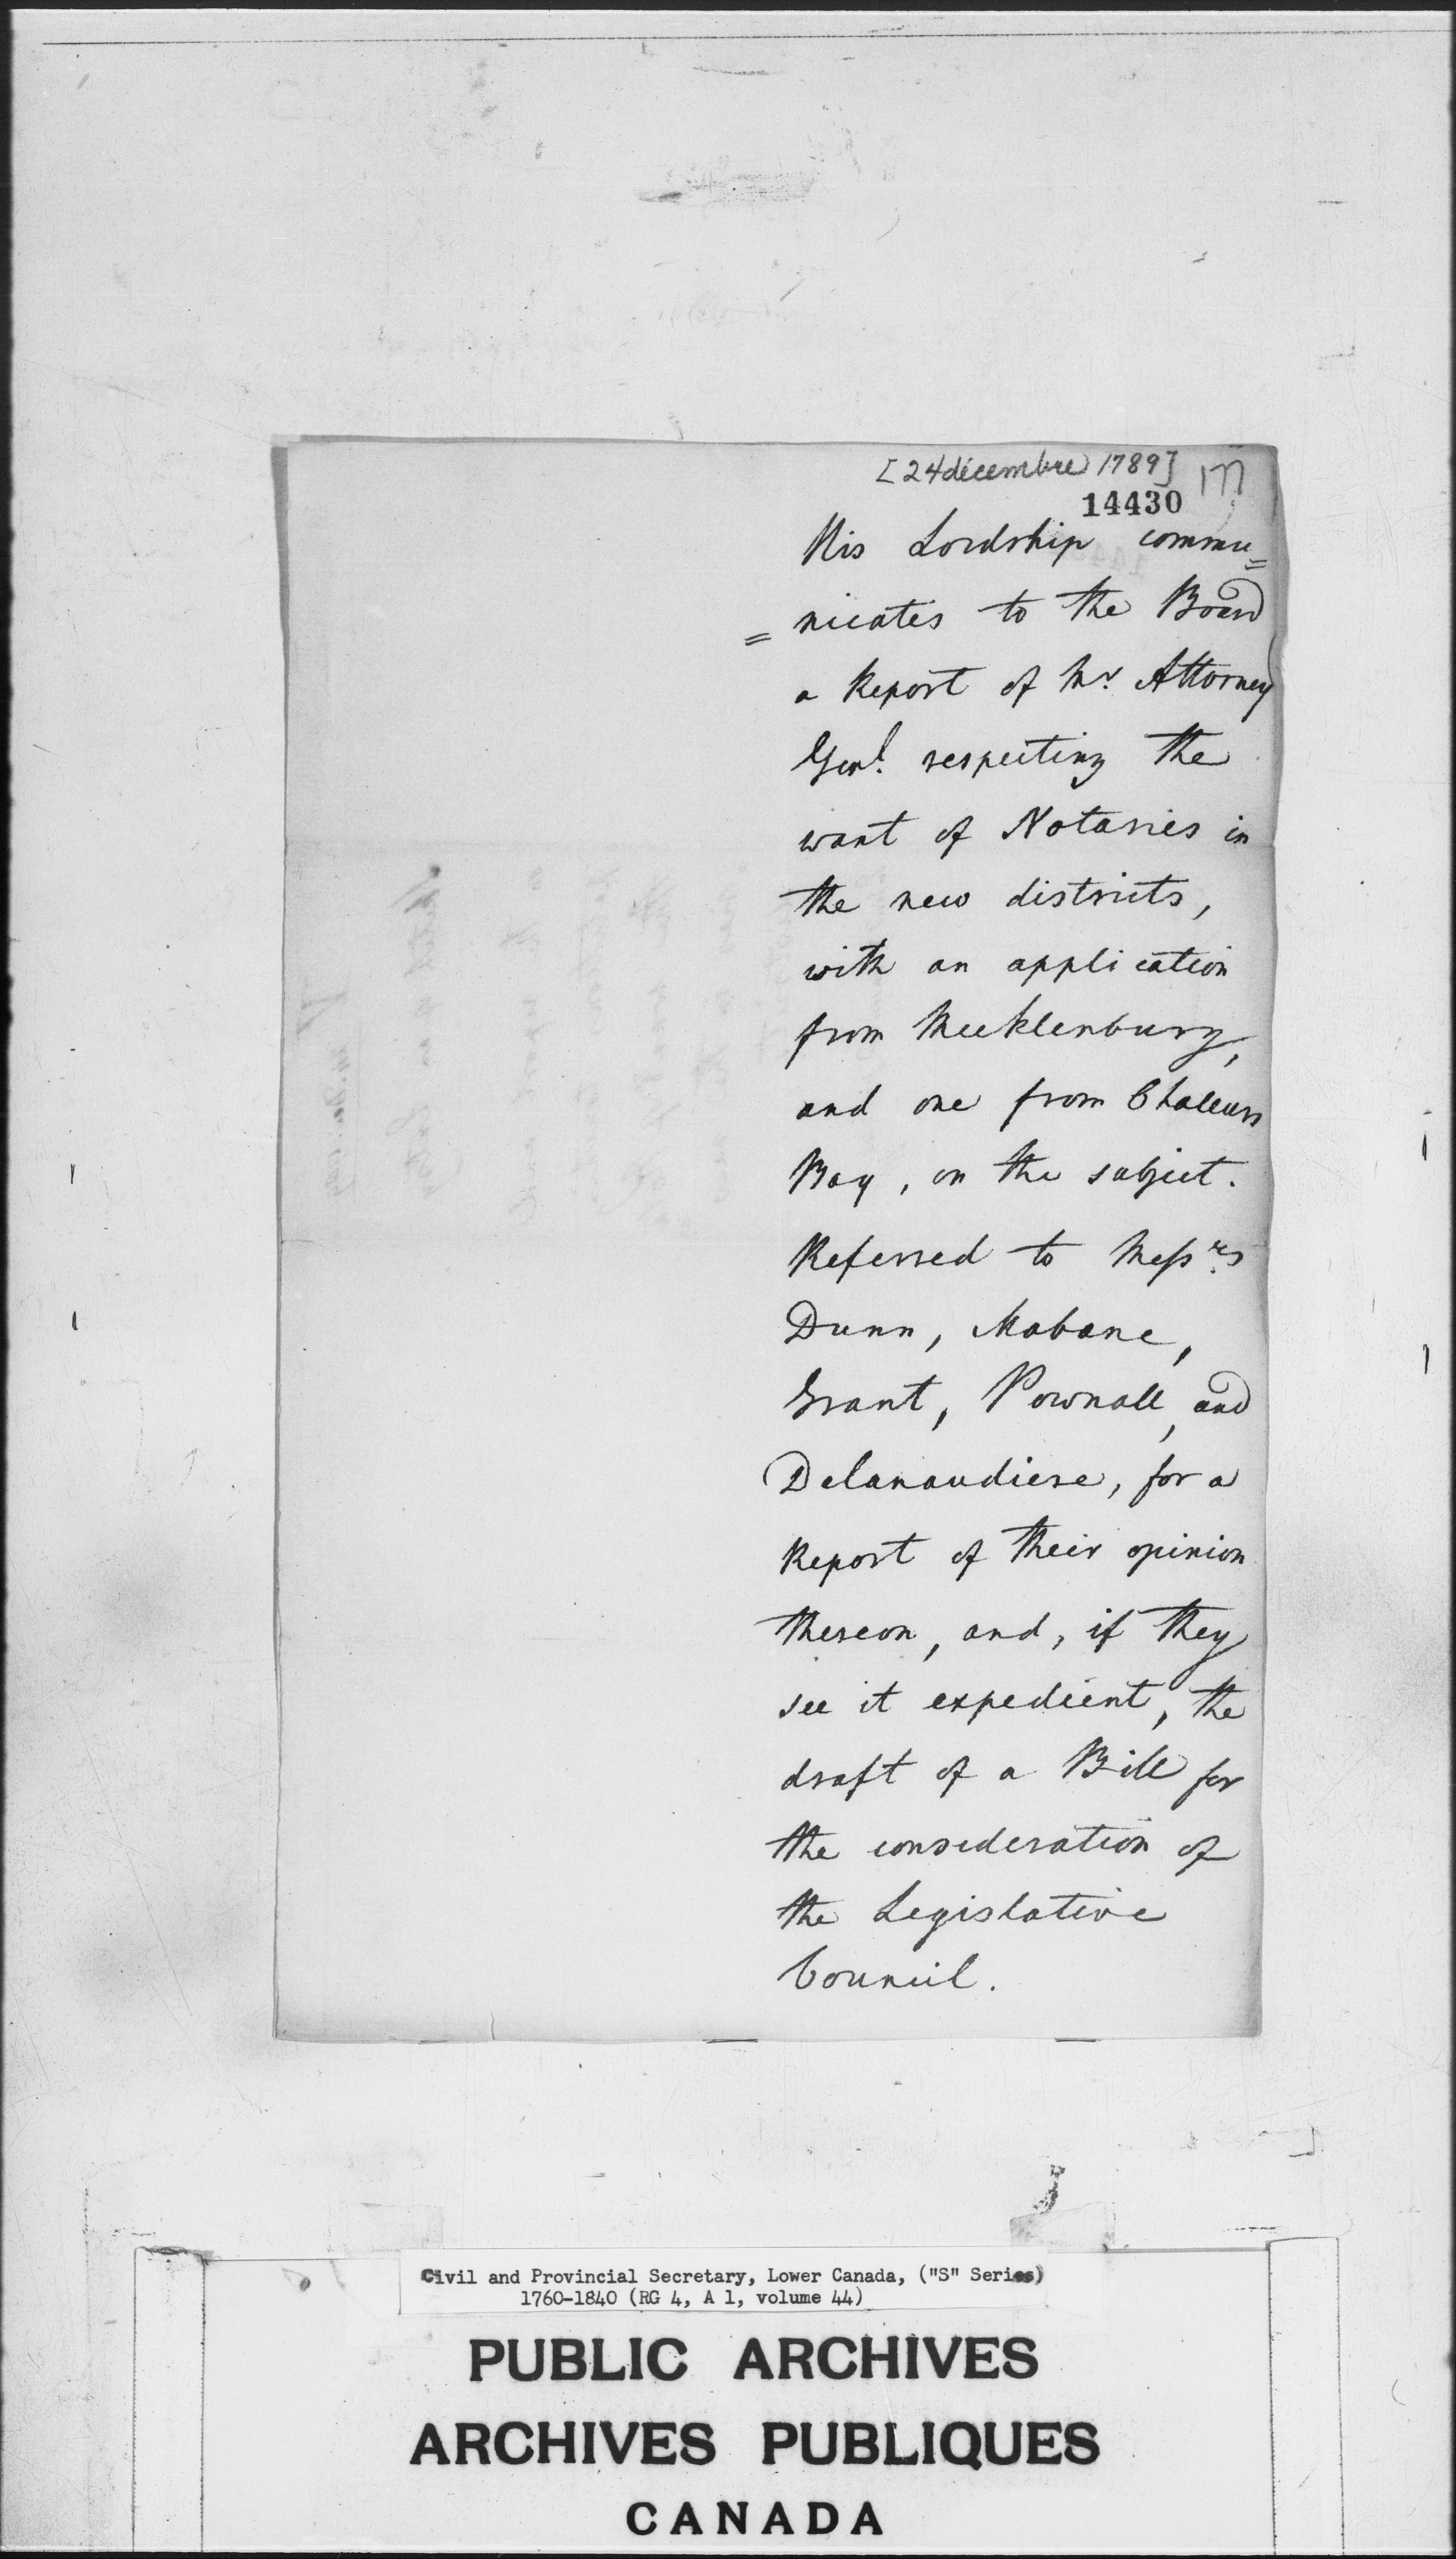 [24 décembre 1789]
14430
His Lordship commu=
=nicates to the Board
a Report of Mr. Attorney
Genl. respecting the
want of Notaries in
the new districts,
with an application
from Mecklenburg,
and one from Chaleurs
Bay, on the subject.
Referred to Messrs.
Dunn, Mabane,
Grant, Pownall, and
Delanaudiere, for a
Report of their opinion
thereon, and, if they
see it expedient, the
draft of a Bill for
the consideration of
the Legislative
Council.
Civil and Provincial Secretary, Lower Canada, ("S" Series)
1760-1840 (RG 4, A 1, volume 44)
PUBLIC ARCHIVES
ARCHIVES PUBLIQUES
CANADA